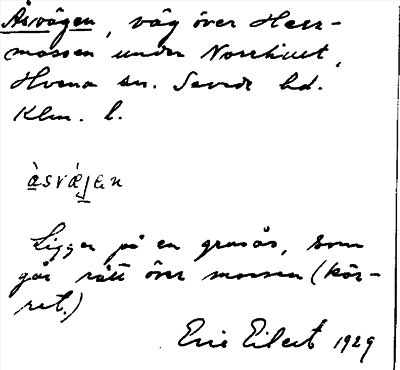 Åsvägen, väg över Herr-
mossen under Norrhult,
Hvena sn. Sevede hd.
Klm. l.
àsvä́gen
Ligger på en grusås, som
går rätt över mossen (kär-
ret.)
Eric Eilert 1929